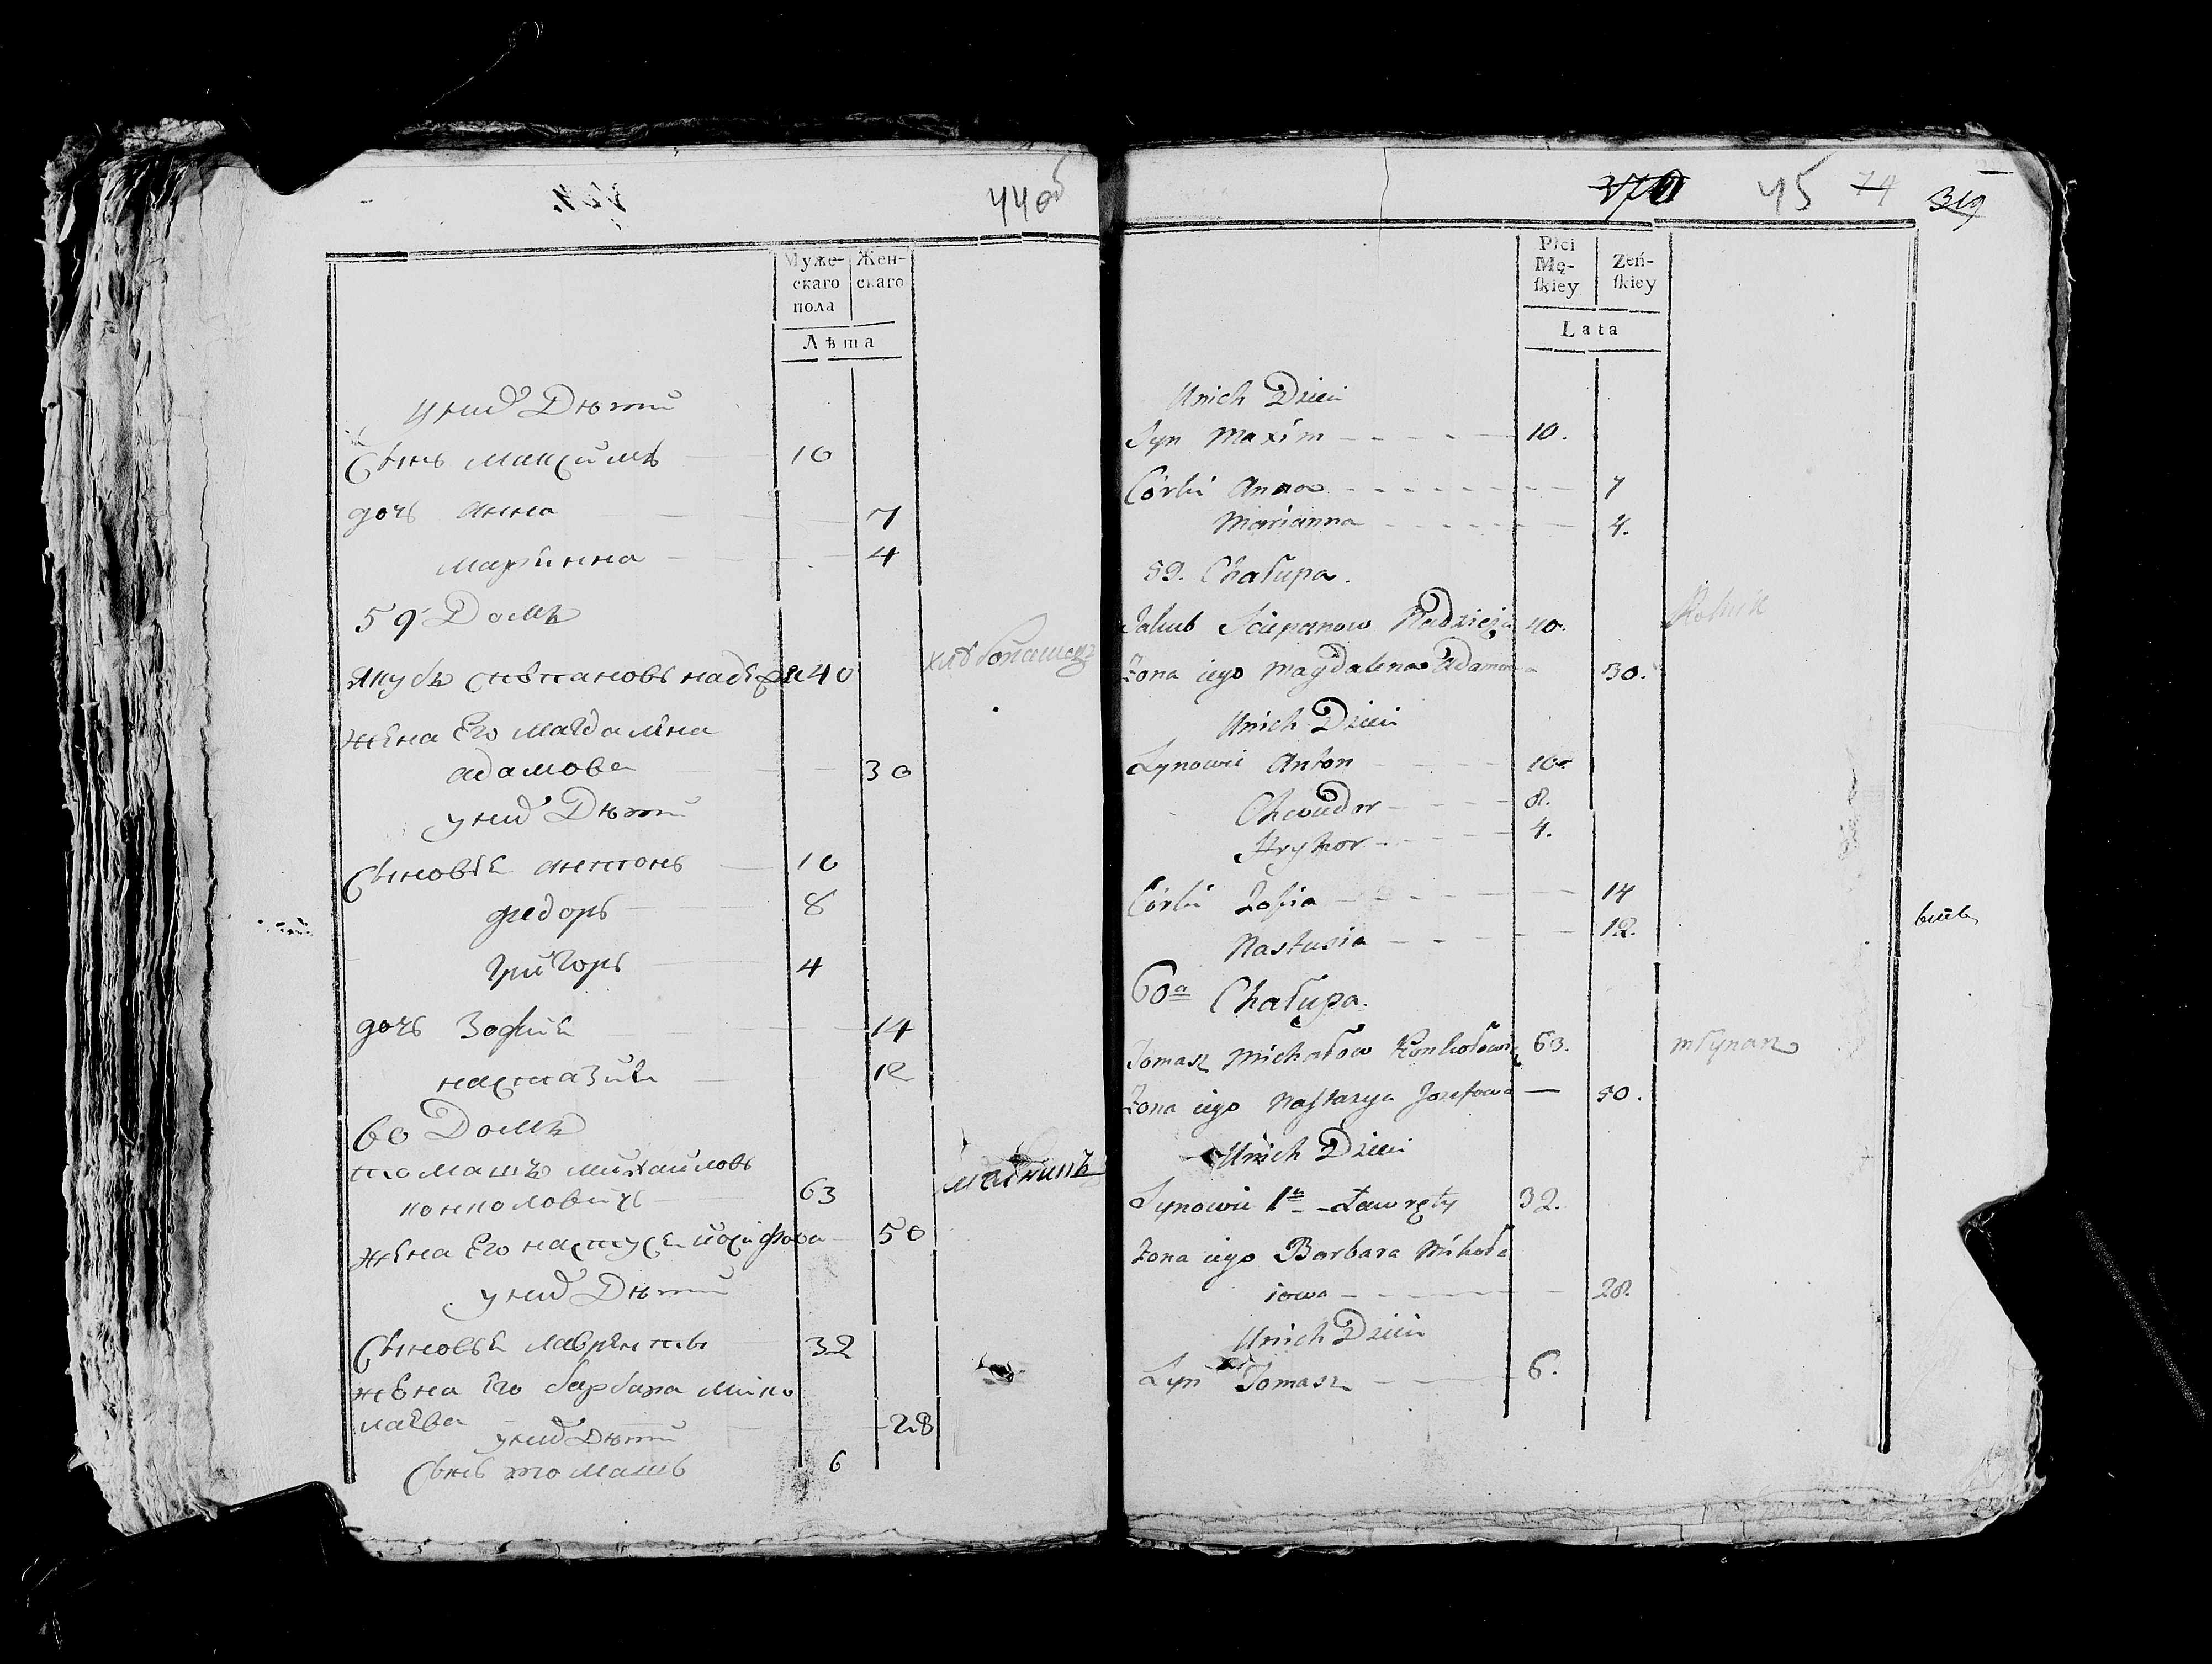 44об
Муже-
скаго
пола
Жен-
скаго
Лѣта
у нид Дѣти
Сынъ Максимъ 10
дочь Анна 7
Марiнна 4
59 Домъ
Якубъ Стѣпановъ 40
жена Его Магдалѣна
адамова 30
у нид Дѣти
Сыновѣя антонъ 10
федоръ 8
григоръ 4
дочь Зофия 14
настазия 12
60 Домъ
томашъ михайловъ
конколовичъ 63
жена Его 50
у нид Дѣти
Сыновѣя лаврѣнты 32
жена Его барбара мико
лаева 28
у нид Дѣти
Сынъ томашъ 6
45 319
Płci
Mę-
ſkiey
Zeń-
ſkiey
Lata
Unich Dzieci
Syn Maxim 10.
Córki Anna 7
Marianna 4.
59. Chałupa.
Jakub Sciepanow 40. Rolnik
Zona iego Magdalena Adamowa 30.
Unich Dzieci
Synowie Anton 10.
Chwiedor 8.
Hryhor 4.
Córki Zofia 14
Nastusia 12.
60a Chałupa.
Tomasz Michałow Konkołowicz 63. młynarz
Zona iego Nastazya Jozefowa 50.
Unich Dzieci
Synowie 1r Ławręty 32.
Zona iego Barbara Mikoła
iowa 28.
Unich Dzieci
Syn Tomasz 6.